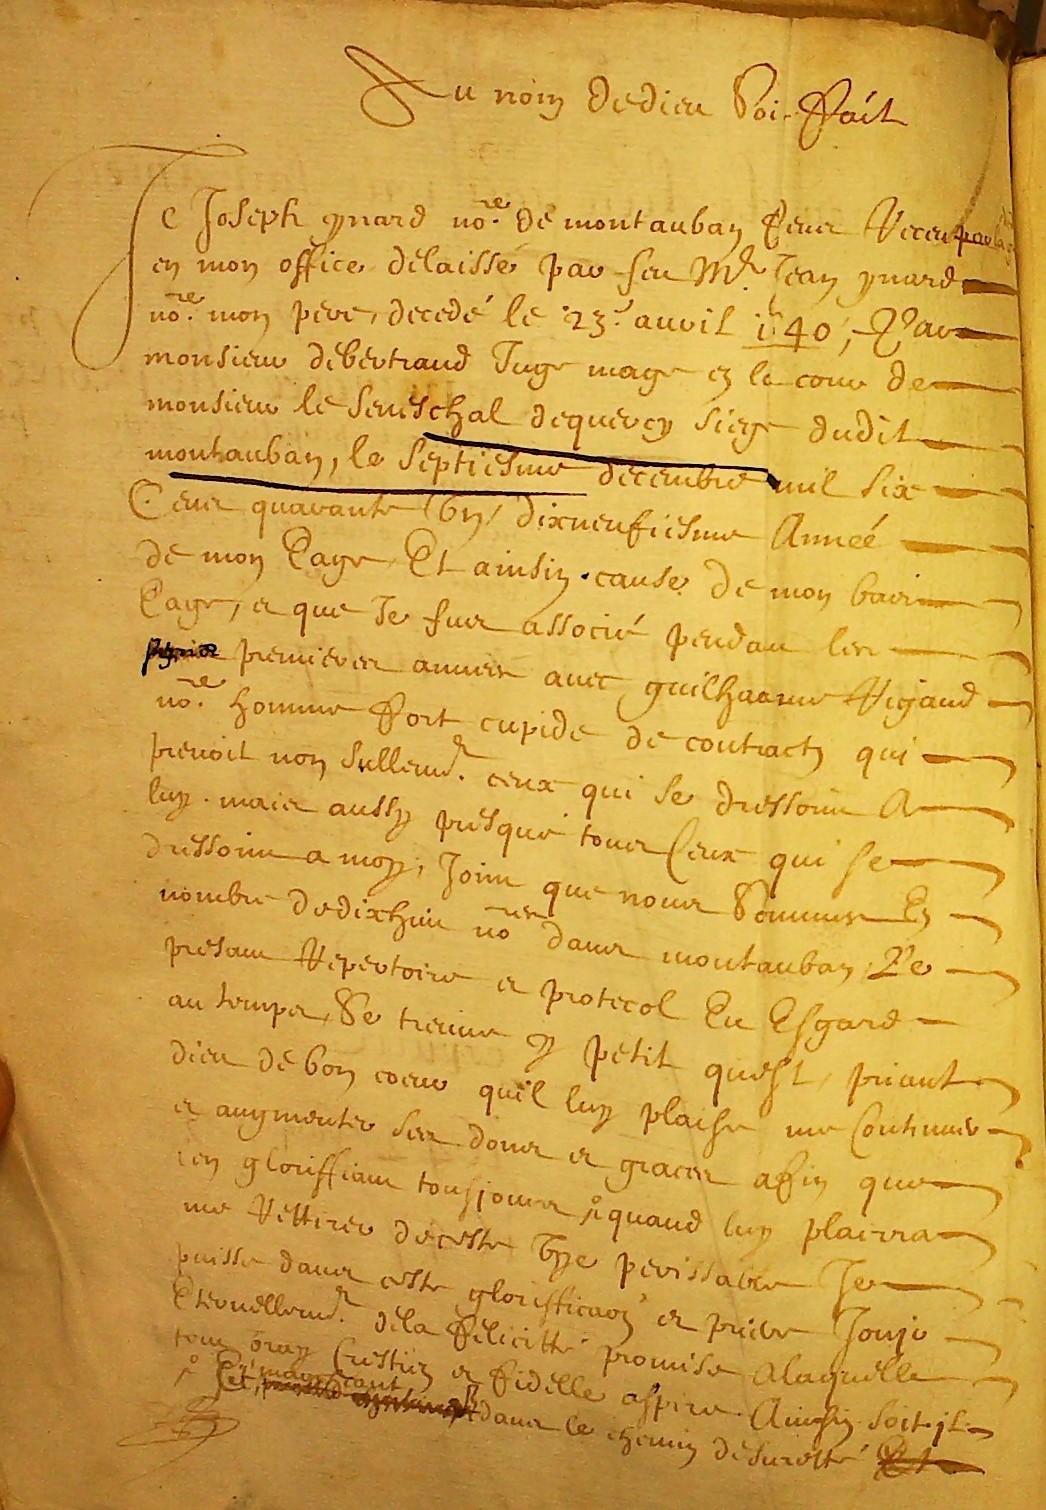 Au nom de dieu Soit Fait
Je Joseph ynard no.re de montauban feus Receu
en mon office delaissé par feu Mr. Jean ynard
no.re mon pere, decedé le 23e. auril 1640, Par
monsieur debertrand Juge mage en la cour de
monsieur le seneschal dequercy siege dudit
montauban, le septiesme decembre mil six
Cens quarante Un, dixneufiesme Année
de mon Eage Et ainsin cause de mon bas
Eage, et que Je fus associé pendan les
premieres annees auec guilhaume Rigaud
no.re homme Fort cupide de contracts qui
prenoit non sullemt. ceux qui se dressoint A
luy. mais aussy presque tous Ceux qui se
dressoint a moy, Joint que nous Sommes En
nombre dedixhuit nores dans montauban, Le
presant Repertoire et protecol Eu Esgard
au temps, Se treuue sy petit quest, priant
dieu de bon coeur quil luy plaise me Continuer
et augmenter ses dons et graces afin que
en gloriffiant tousjours et quand luy plairra
me Rettirer deceste vye perissable Je
puisse dans ceste gloriffica͠on et priere Jouir
Eternellemt. dela Felicitté promise Alaquelle
tout vray Crestien et Fidelle aspire. Ainsin soit-il
dans le chemin desuretté